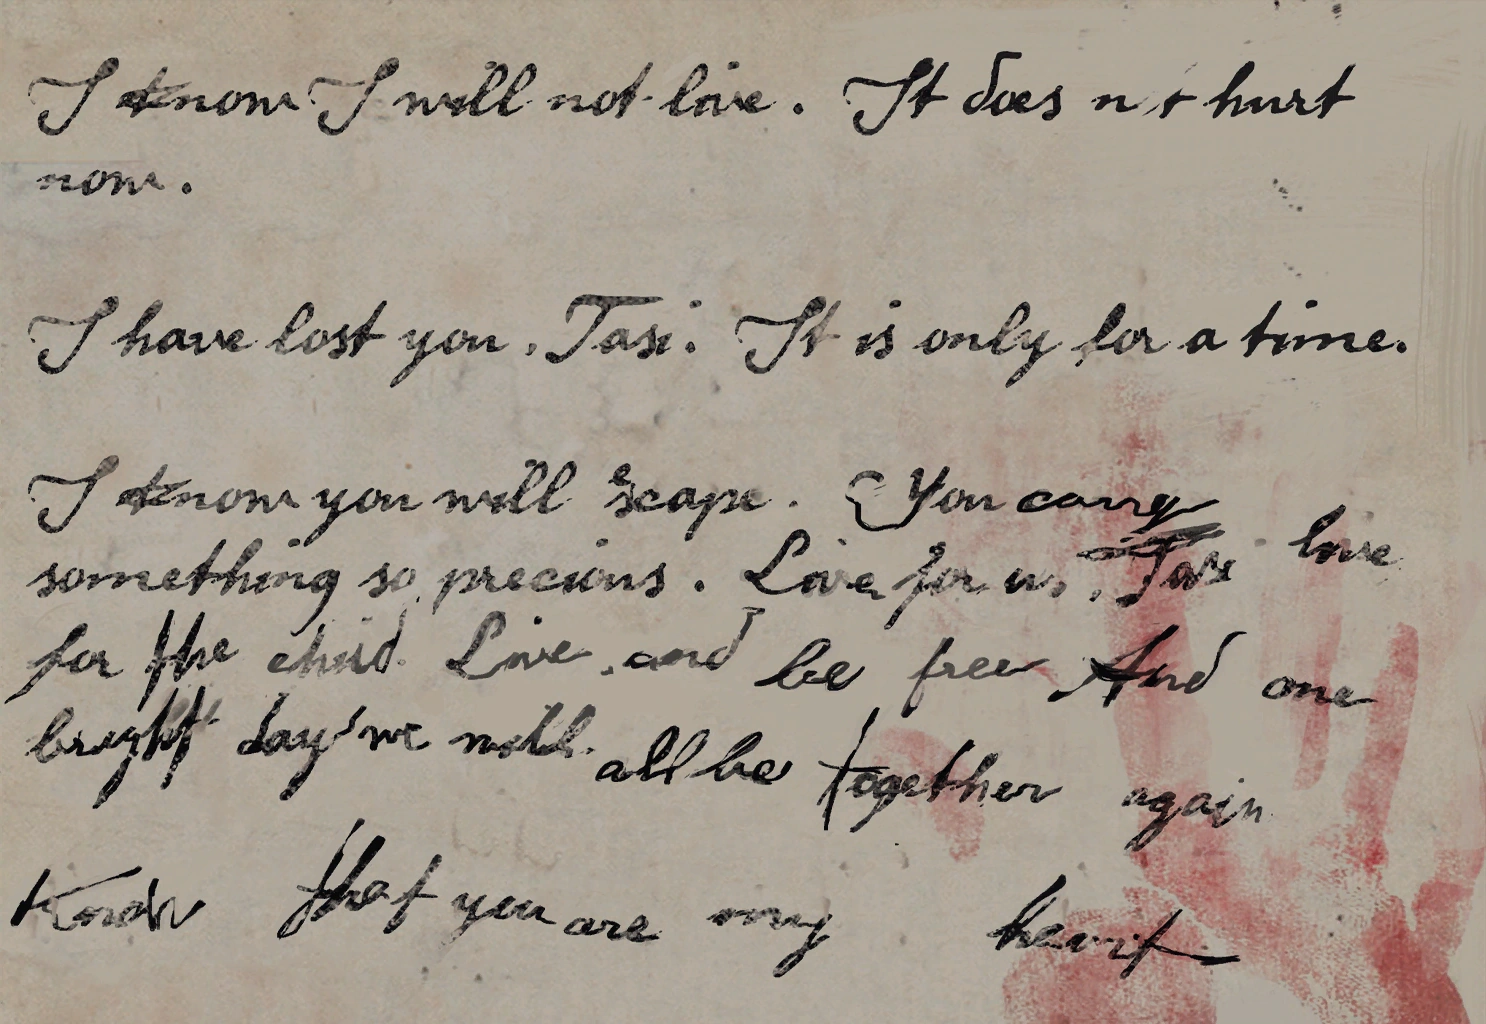 I know I will not live. It does not hurt
now.
I have lost you, Tasi. It is only for a time.
I know you will escape. You carry
something so precious. Live for us, Tasi live
for the child. Live, and be free And one
bright day we will all be together again
Know that you are my heart